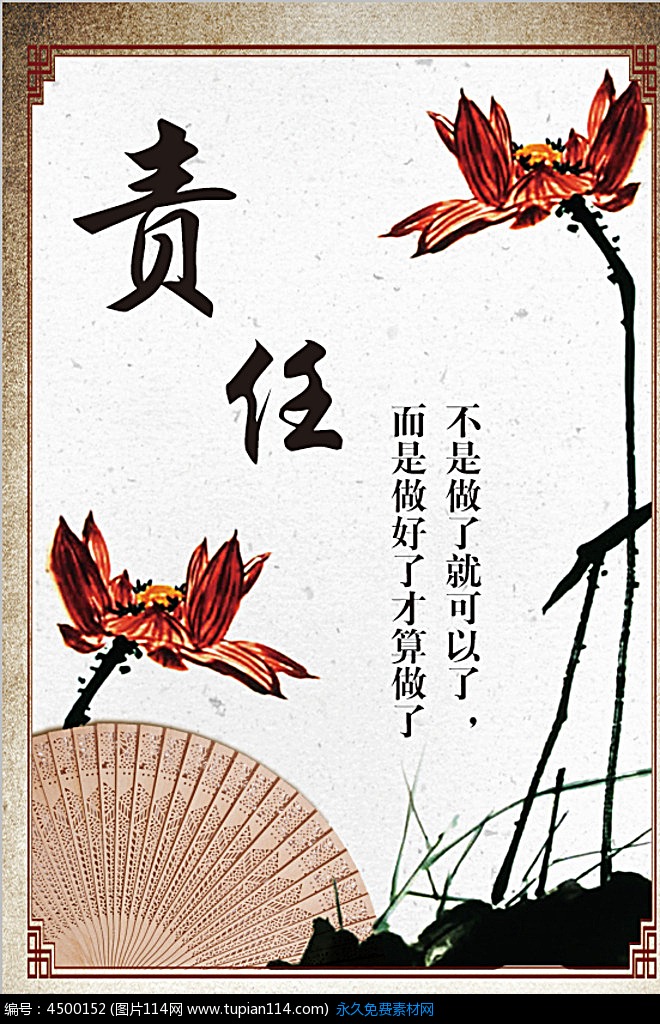 责任
不是做了就可以了，
而是做好了才算做了
编号：4500152 (图片114网 www.tupian114.com) 永久免费素材网